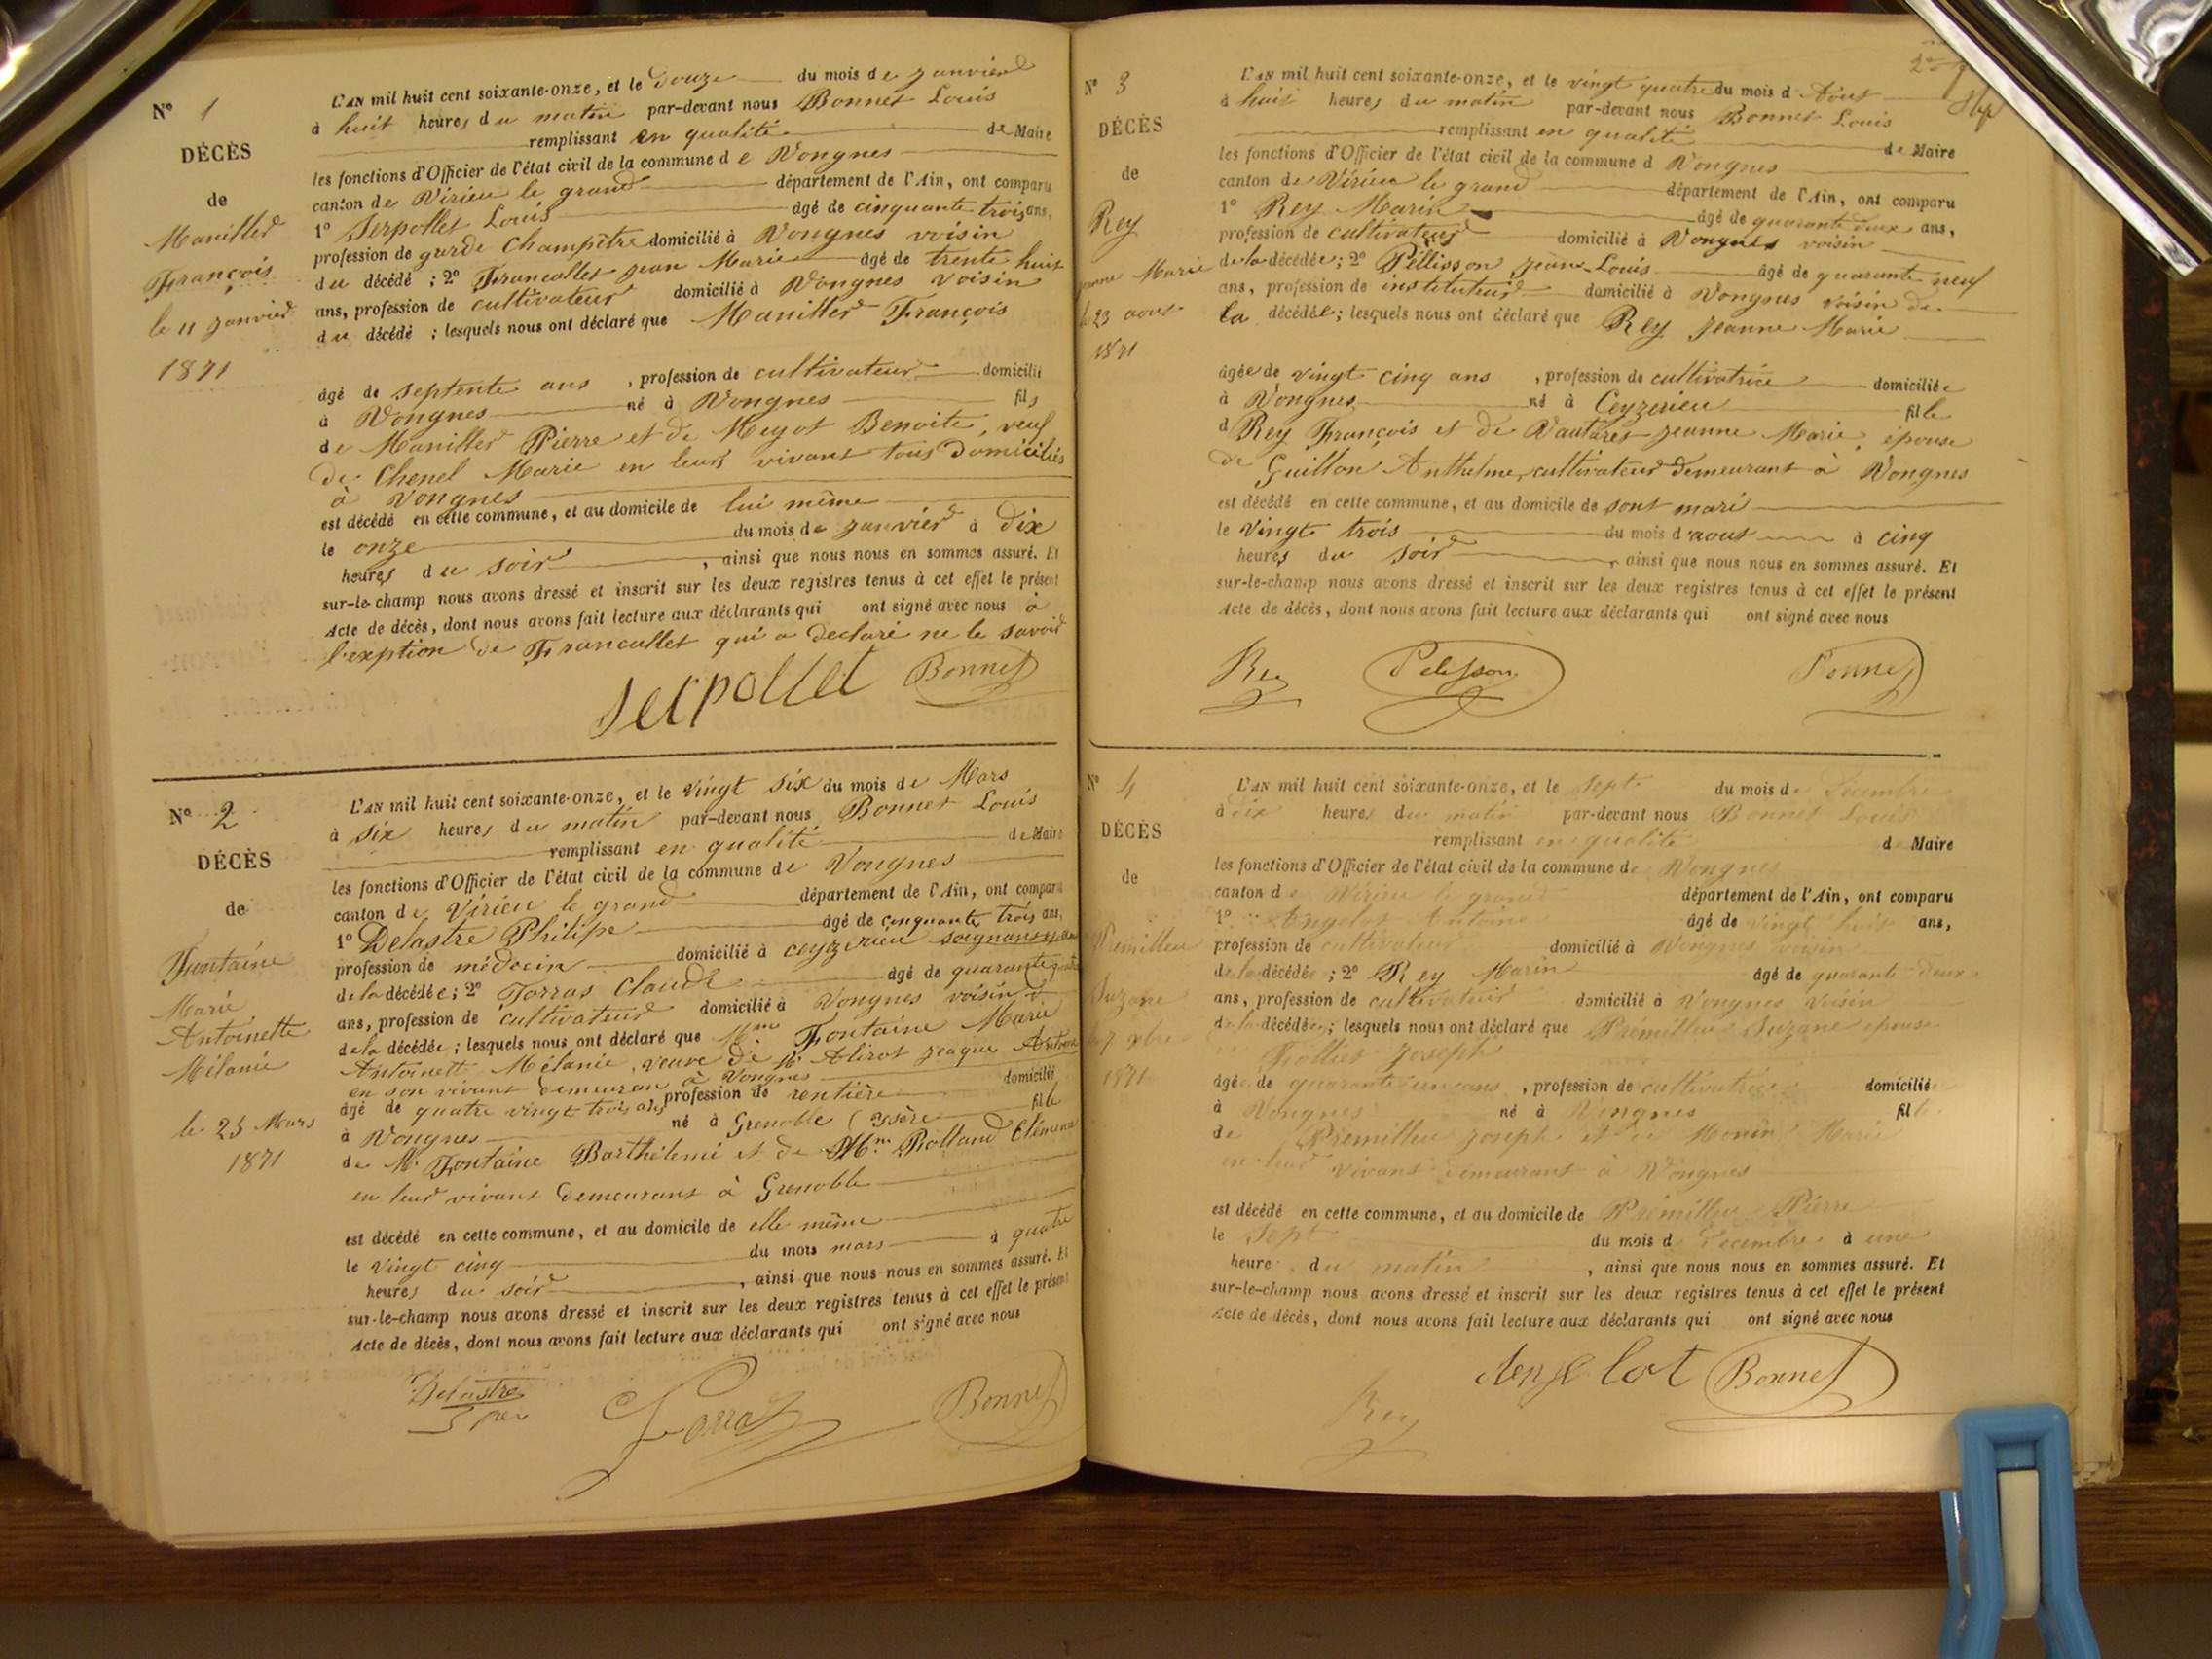 N° 1
DÉCÈS
de
Maniller
François
le 11 janvier
1871
L'AN mil huit cent soixante-onze, et le douze du mois de janvier
à huit heures du matin par-devant nous Bonnet Louis
remplissant en qualité de Maire
les fonctions d'Officier de l'état civil de la commune de Vongnes
canton de Virieu le grand département de l'Ain, ont comparu
1° Serpollet Louis âgé de cinquante trois ans,
profession de garde champêtre domicilié à Vongnes voisin
du décédé ; 2° Francallet jean Marie âgé de trente huit
ans, profession de cultivateur domicilié à Vongnes voisin
du décédé ; lesquels nous ont déclaré que Maniller François
âgé de septente ans , profession de cultivateur domicilié
à Vongnes né à Vongnes fils
de Maniller Pierre et de Meyot Benoite, veuf
de Chenel Marie en leurs vivant tous domiciliés
à Vongnes
est décédé en cette commune, et au domicile de lui même
le onze du mois de janvier à dix
heures du soir , ainsi que nous nous en sommes assuré. Et
sur-le-champ nous avons dressé et inscrit sur les deux registres tenus à cet effet le présent
Acte de décès, dont nous avons fait lecture aux déclarants qui ont signé avec nous à
l'exption de Francallet qui a declaré ne le savoir
Serpollet Bonnet
N° 2
DÉCÈS
de
Fontaine
Marie
Antoinette
Mélanie
le 25 Mars
1871
L'AN mil huit cent soixante-onze, et le vingt six du mois de Mars
à six heures du matin par-devant nous Bonnet Louis
remplissant en qualité de Maire
les fonctions d'Officier de l'état civil de la commune de Vongnes
canton de Virieu le grand département de l'Ain, ont comparu
1° Delastre Philipe âgé de cinquante trois ans,
profession de médecin domicilié à ceyzerieu soignant
de la décédée ; 2° Torras Claude âgé de quarante
ans, profession de cultivateur domicilié à Vongnes voisin
de la décédée ; lesquels nous ont déclaré que Mme Fontaine Marie
Antoinett Mélanie, veuve de Mr Alirot jeaque
en son vivant demeuran à Vongnes
âgé de quatre vingt trois ans profession de rentière domicilié
à Vongnes né à Grenoble (ysère fille
de Mr Fontaine Barthélemi et de Mme Rolland
en leur vivant demeurant à Grenoble
est décédé en cette commune, et au domicile de elle même
le vingt cinq du mois mars à quatre
heures du soir , ainsi que nous nous en sommes assuré. Et
sur-le-champ nous avons dressé et inscrit sur les deux registres tenus à cet effet le présent
Acte de décès, dont nous avons fait lecture aux déclarants qui ont signé avec nous
Delastre Torras Bonnet
N° 3
DÉCÈS
de
Rey
jeanne Marie
le 23 aout
1871
L'AN mil huit cent soixante-onze, et le vingt quatre du mois d Aout
à huit heures du matin par-devant nous Bonnet Louis
remplissant en qualité de Maire
les fonctions d'Officier de l'état civil de la commune d Vongnes
canton de Virieu le grand département de l'Ain, ont comparu
1° Rey Marin âgé de quarante deux ans,
profession de cultivateur domicilié à Vongnes voisin
de la décédée ; 2° Pellisson jean-Louis âgé de quarante neuf
ans, profession de instituteur domicilié à Vongnes voisin de
la décédée ; lesquels nous ont déclaré que Rey jeanne Marie
âgée de vingt cinq ans , profession de cultivatrice domiciliée
à Vongnes né à Ceyzerieu fille
d Rey François et de Vautaret jeanne Marie, épouse
de Guillon Anthelme, cultivateur demeurant à Vongnes
est décédé en cette commune, et au domicile de sont mari
le vingt trois du mois d'aout à cinq
heures du soir , ainsi que nous nous en sommes assuré. Et
sur-le-champ nous avons dressé et inscrit sur les deux registres tenus à cet effet le présent
Acte de décès, dont nous avons fait lecture aux déclarants qui ont signé avec nous
Rey Pelisson Bonnet
N° 4
DÉCÈS
de
Prémilleu
Suzane
le 7 xbre
1871
L'AN mil huit cent soixante-onze, et le sept du mois de Décembre
à dix heures du matin par-devant nous Bonnet Louis
remplissant en qualité d Maire
les fonctions d'Officier de l'état civil de la commune de Vongnes
canton de Virieu le grand département de l'Ain, ont comparu
1° Angelot Antoine âgé de vingt huit ans,
profession de cultivateur domicilié à Vongnes voisin
de la décédée ; 2° Rey Marin âgé de quarante deux
ans, profession de cultivateur domicilié à Vongnes voisin
de la décédée ; lesquels nous ont déclaré que Prémilleu Suzane épouse
Tollier joseph
âgée de quarante un ans , profession de cultivatrice domiciliée
à Vongnes né à Vongnes fille
de Prémilleu joseph et de Monin Marie
en leur vivant demeurant à Vongnes
est décédé en cette commune, et au domicile de Prémilleu Pierre
le Sept du mois d Décembre à une
heure du matin , ainsi que nous nous en sommes assuré. Et
sur-le-champ nous avons dressé et inscrit sur les deux registres tenus à cet effet le présent
Acte de décès, dont nous avons fait lecture aux déclarants qui ont signé avec nous
Rey Angelot Bonnet